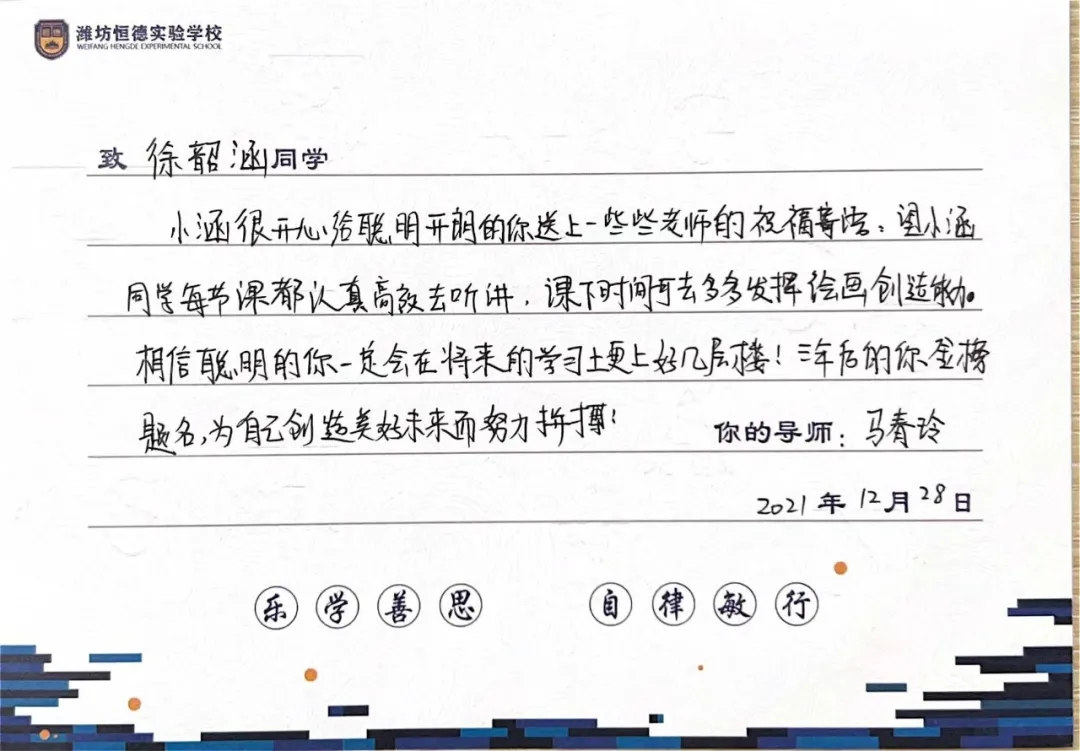 潍坊恒德实验学校
WEIFANG HENGDE EXPERIMENTAL SCHOOL
致 徐韶涵同学
小涵很开心给聪明开朗的你送上一些些老师的祝福寄语：望小涵
同学每节课都认真高效去听讲，课下时间可去多多发挥绘画创造能力。
相信聪明的你一定会在将来的学习上更上好几层楼！三年后的你金榜
题名，为自己创造美好未来而努力拼搏！
你的导师：马春玲
2021年12月28日
乐学善思 自律敏行